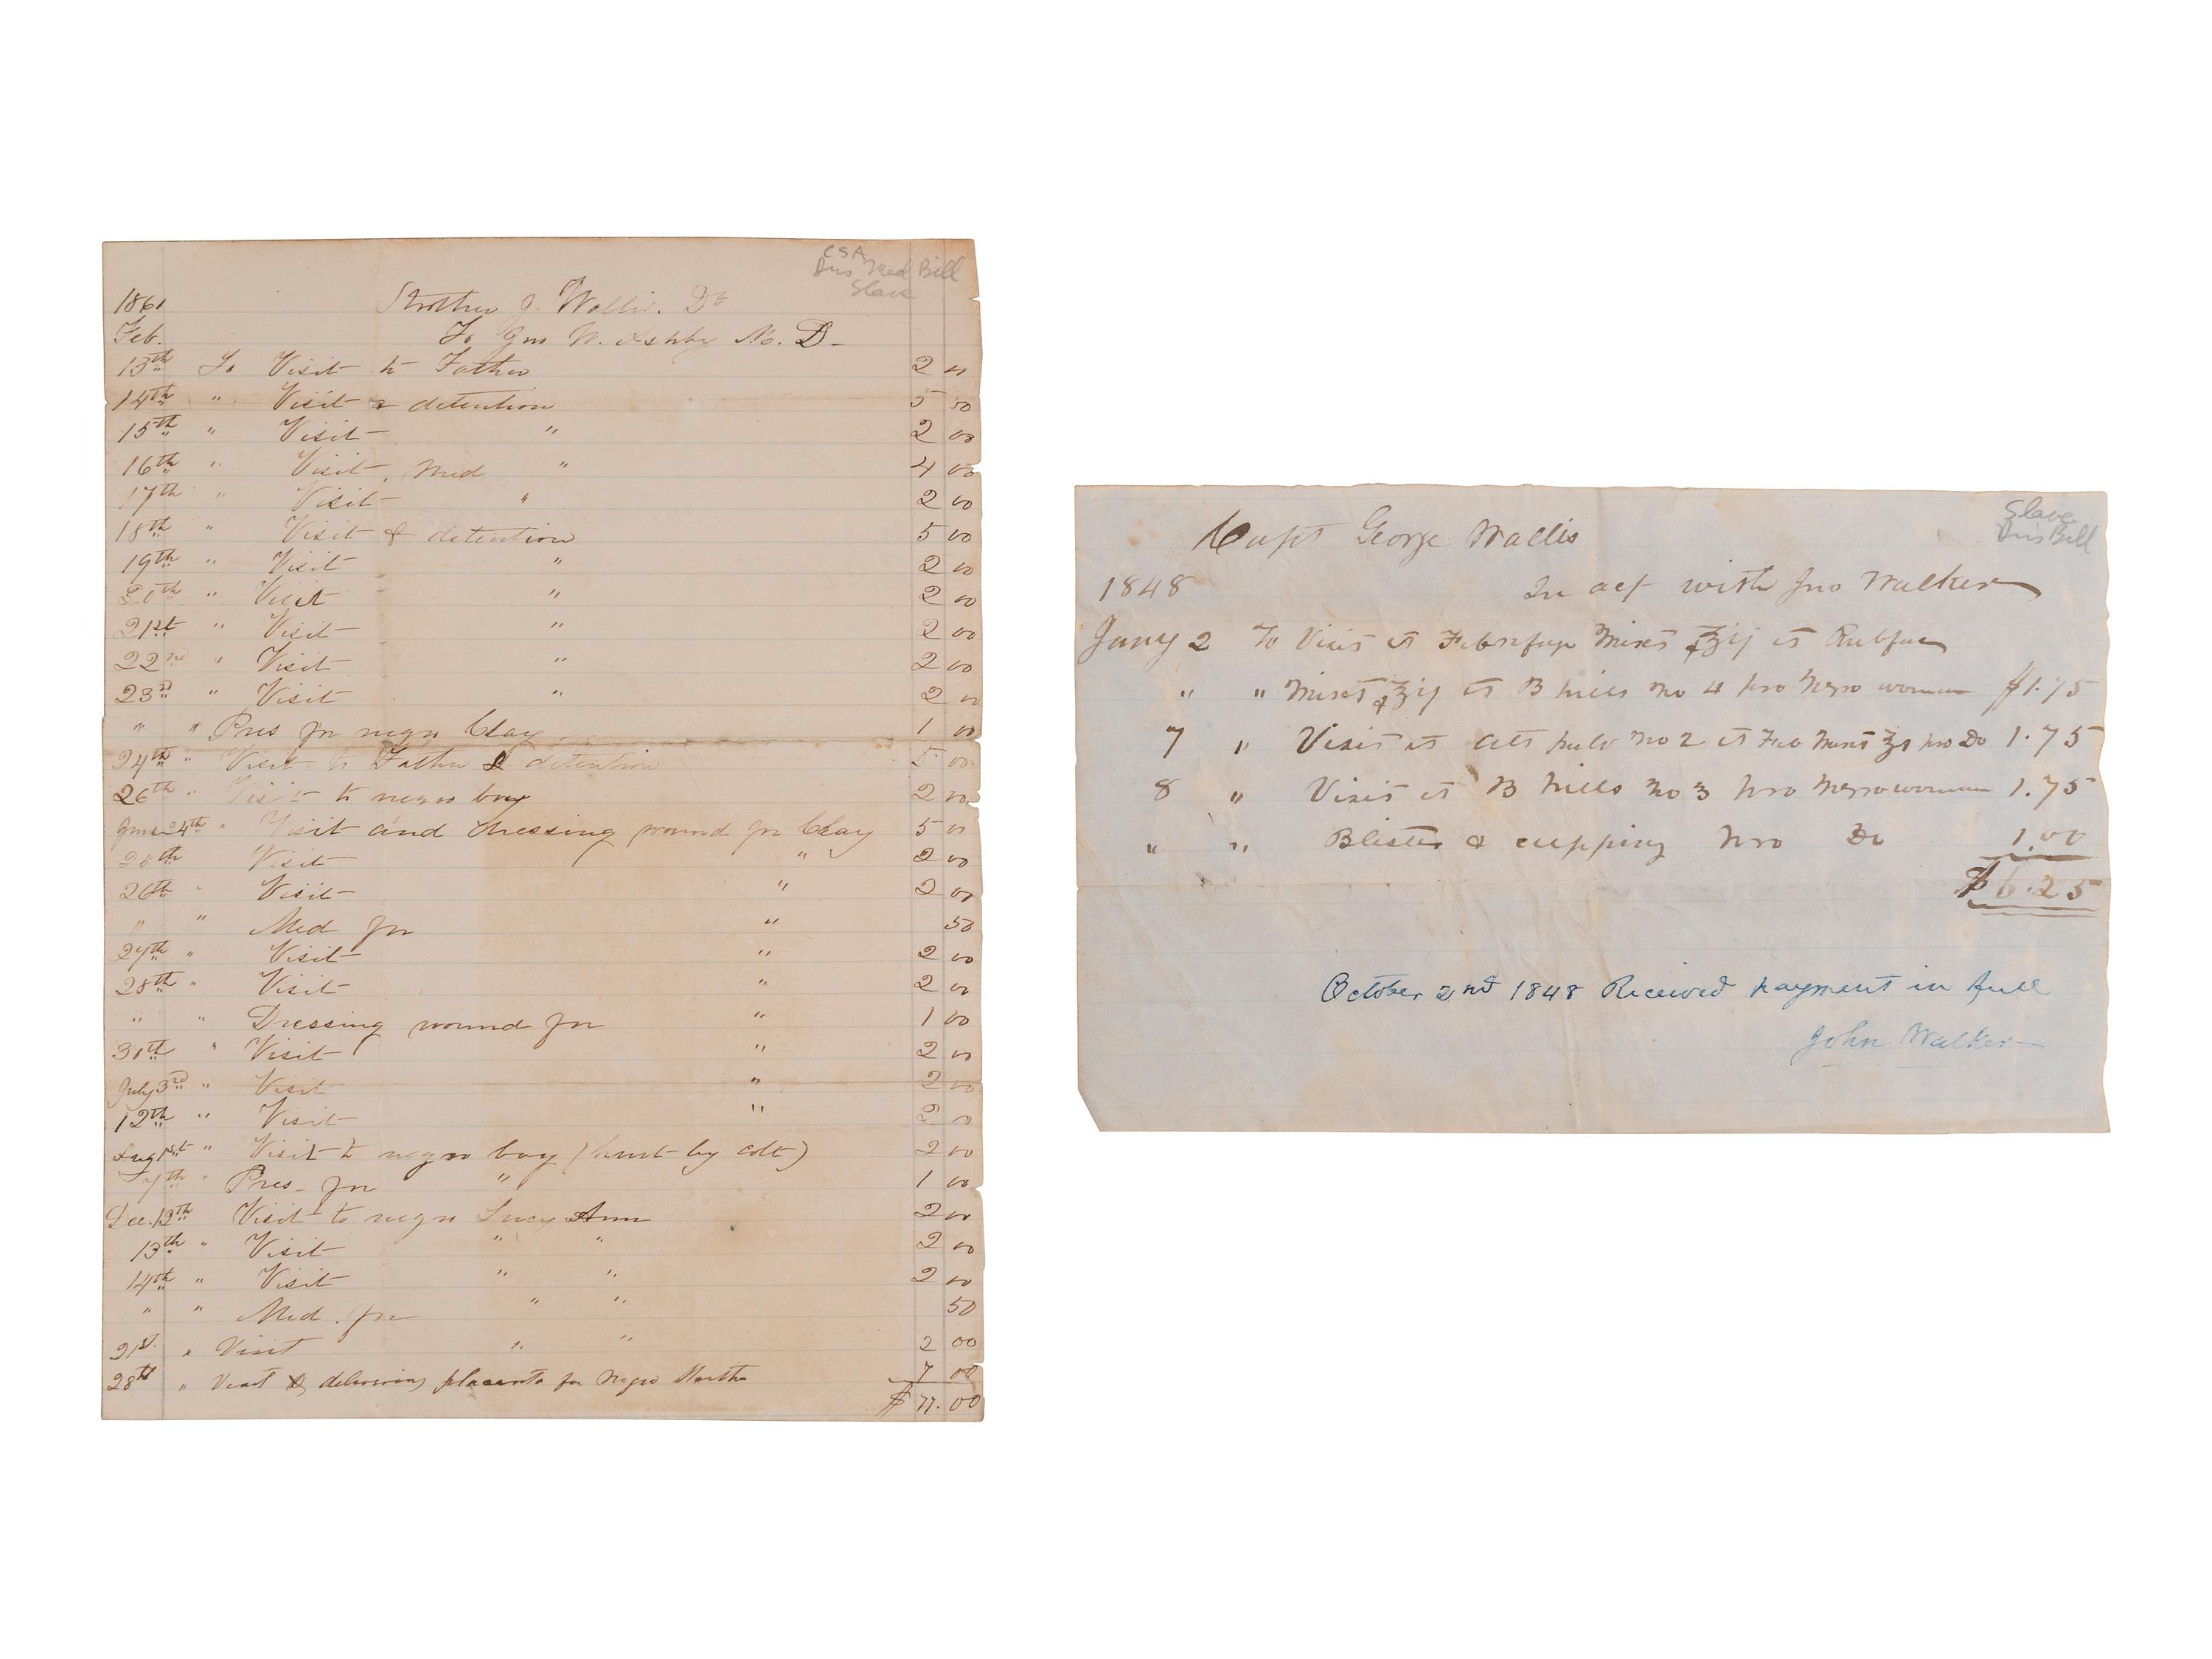 CSA
Drs Med Bill
Slave
1861 Strother J. Wallis. Dr
Feb. To Jno W. Ashby M. D-
13th To Visit to Father 2 00
14th " Visit & detention 5 00
15th " Visit " 2 00
16th " Visit, Med " 4 00
17th " Visit " 2 00
18th " Visit & detention 5 00
19th " Visit " 2 00
20th " Visit " 2 00
21st " Visit " 2 00
22nd " Visit " 2 00
23rd " Visit " 2 00
" " Pres for negro Clay 1 00
24th " Visit to Father & detention 5 00
26th " Visit to negro boy 2 00
June 24th " Visit and dressing wound for Clay 5 00
25th Visit " 2 00
26th " Visit " 2 00
" " Med for " 50
27th " Visit " 2 00
28th " Visit " 2 00
" " Dressing wound for " 1 00
30th " Visit " 2 00
July 3rd " Visit " 2 00
12th " Visit " 2 00
Aug 1st " Visit to negro boy (hurt by colt) 2 00
7th " Pres- for " 1 00
Dec. 12th Visit to negro Lucy Ann 2 00
13th " Visit " " 2 00
14th " Visit " " 2 00
" " Med. for " " 50
21st. " Visit " " 2 00
28th " Visit & delivering placenta for Negro Martha 7 00
$ 77.00
Slave
Drs Bill
Capt George Wallis
1848 In act with Jno Walker
Jany 2 To Visit et Febrifuge Mixt ʒij et
" " Mixt ʒij et B pills no 4 pro Negro woman $1.75
7 " Visit et pulv no 2 et Feb Mixt pro Do 1.75
8 " Visit et B pills no 3 pro Negro woman 1.75
" " Blister & cupping pro Do 1.00
$6.25
October 2nd 1848 Received payment in full
John Walker